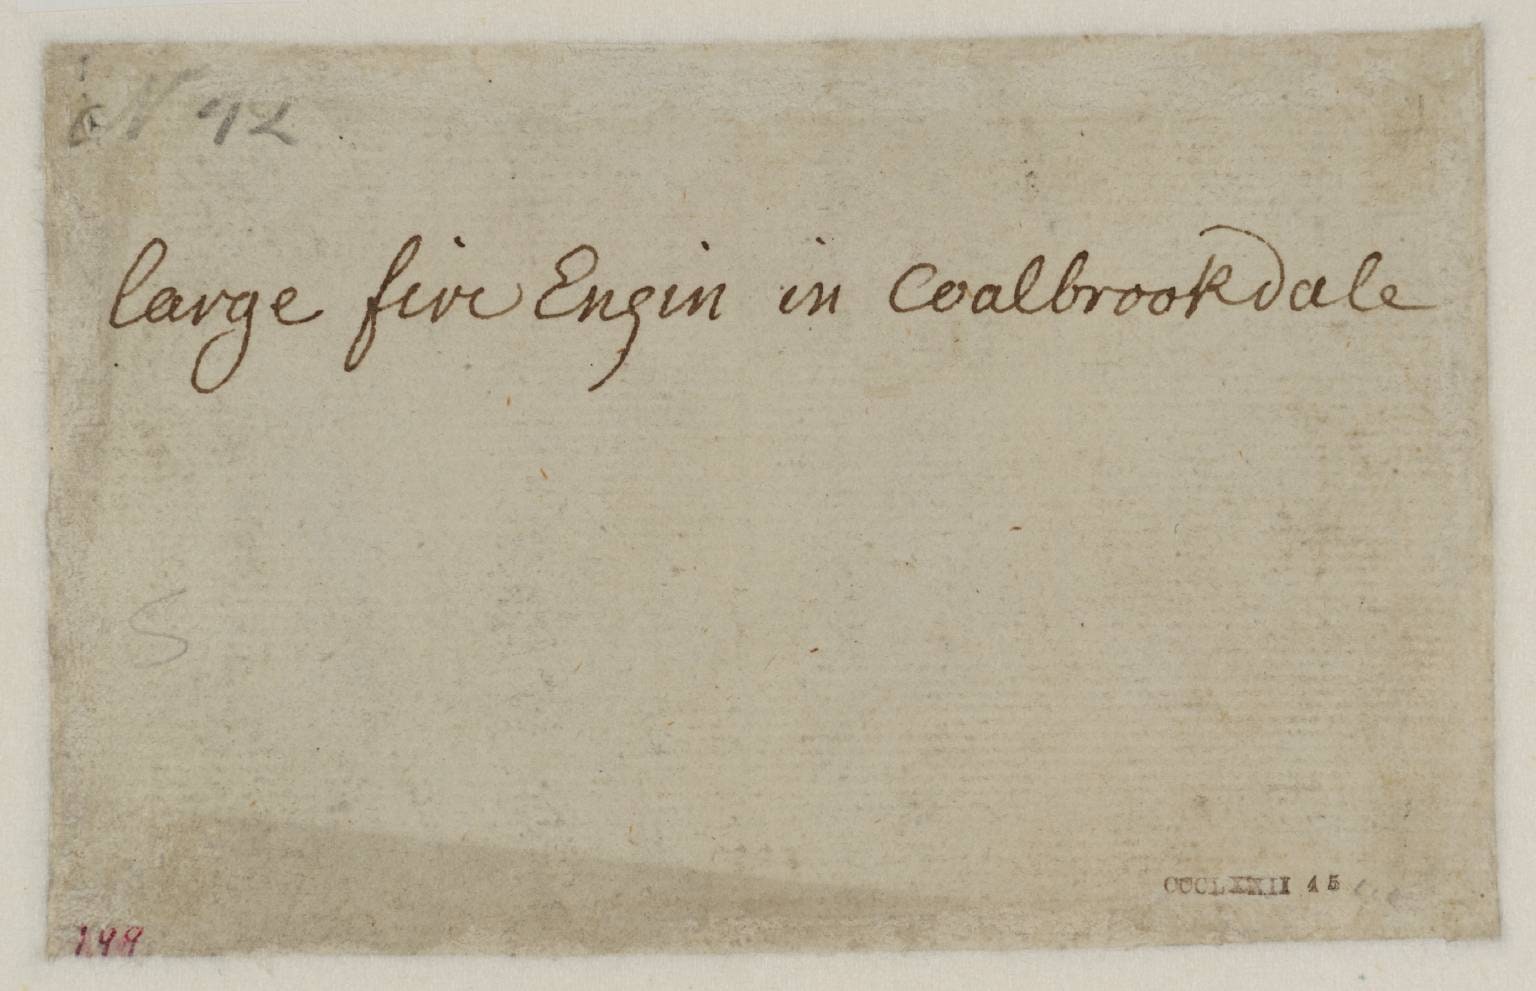 N 72
large fire Engin in Coalbrookdale
S
CCCLXXII 15